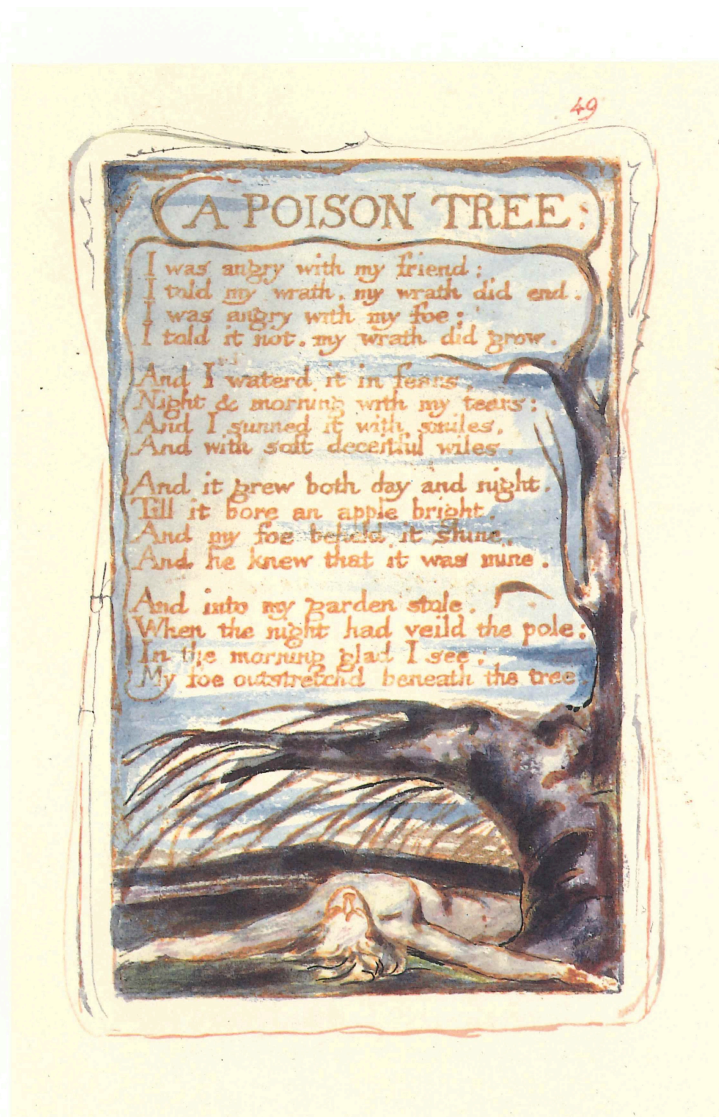 49
A POISON TREE.
I was angry with my friend;
I told my wrath, my wrath did end.
I was angry with my foe:
I told it not, my wrath did grow.
And I waterd it in fears,
Night & morning with my tears:
And I sunned it with smiles,
And with soft deceitful wiles.
And it grew both day and night.
Till it bore an apple bright.
And my foe beheld it shine,
And he knew that it was mine.
And into my garden stole,
When the night had veild the pole;
In the morning glad I see,
My foe outstretchd beneath the tree